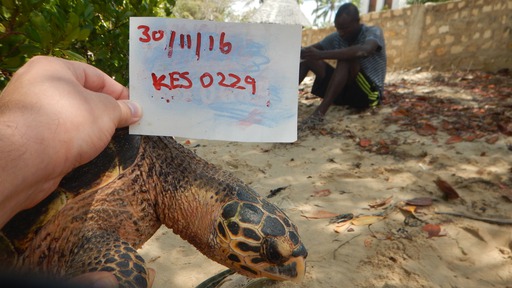 30/11/16
KES 0229